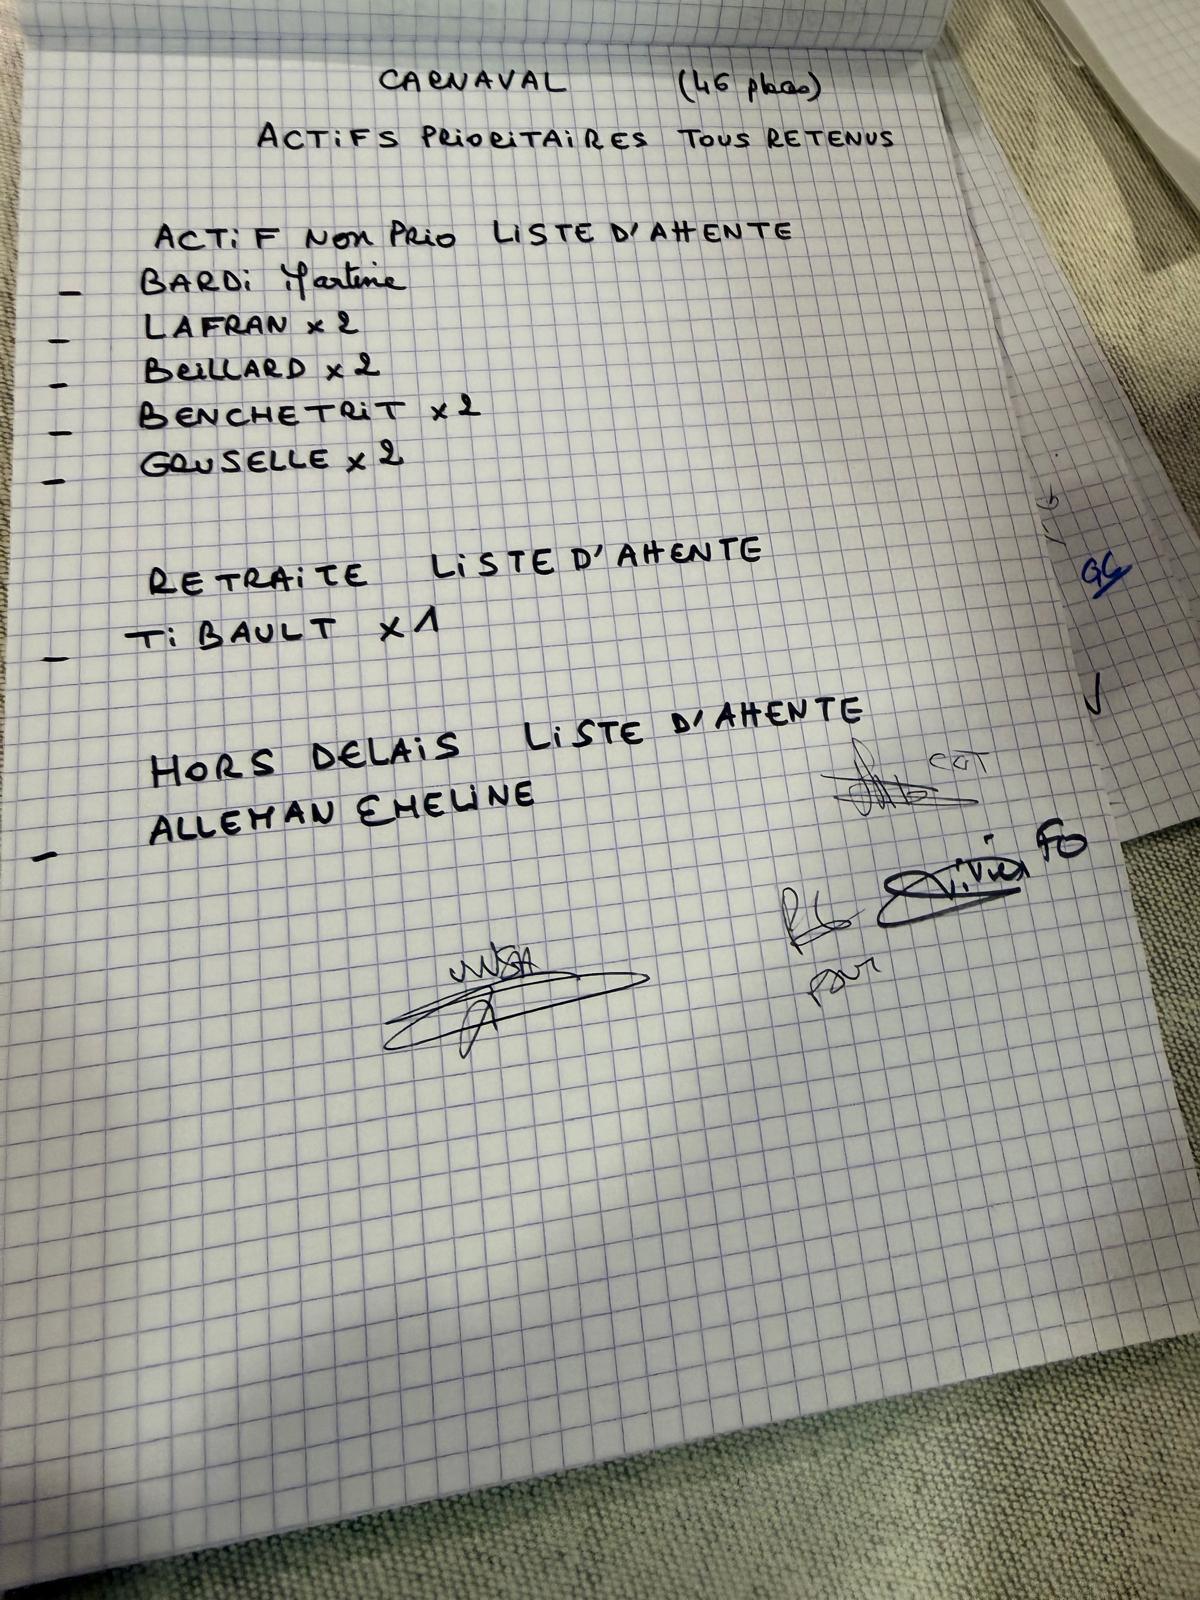 CARNAVAL (46 places)
ACTiFS PRiORiTAiRES TOUS RETENUS
ACTiF Non PRio LiSTE D'ATTENTE
- BARDi Martine
- LAFRAN x 2
- BRiLLARD x 2
- BENCHETRiT x 2
- GRUSELLE x 2
RETRAiTE LiSTE D'ATTENTE
- TiBAULT x 1
HORS DELAiS LiSTE D'ATTENTE
- ALLEMAN EMELiNE
CGT
FO
pour
UNSA